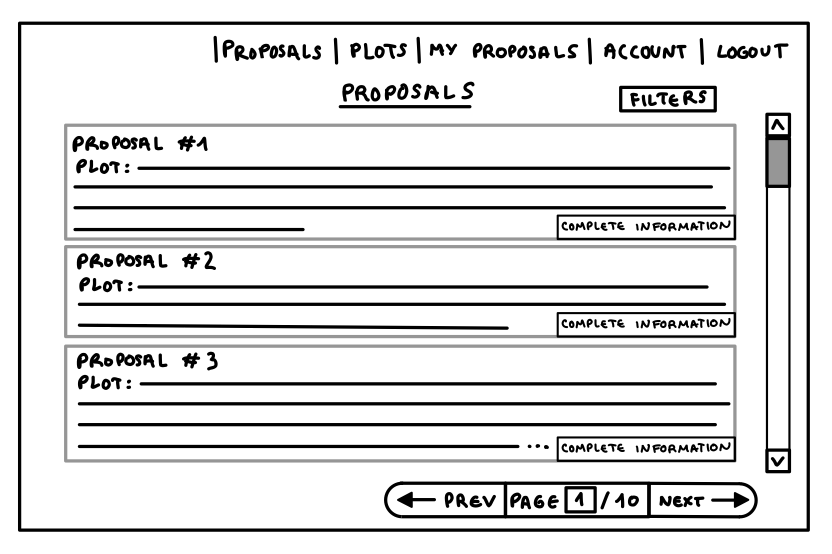 |PROPOSALS | PLOTS | MY PROPOSALS | ACCOUNT | LOGOUT
PROPOSALS
FILTERS
PROPOSAL #1
PLOT:
COMPLETE INFORMATION
PROPOSAL #2
PLOT:
COMPLETE INFORMATION
PROPOSAL #3
PLOT:
... COMPLETE INFORMATION
PREV PAGE 1 / 10 NEXT